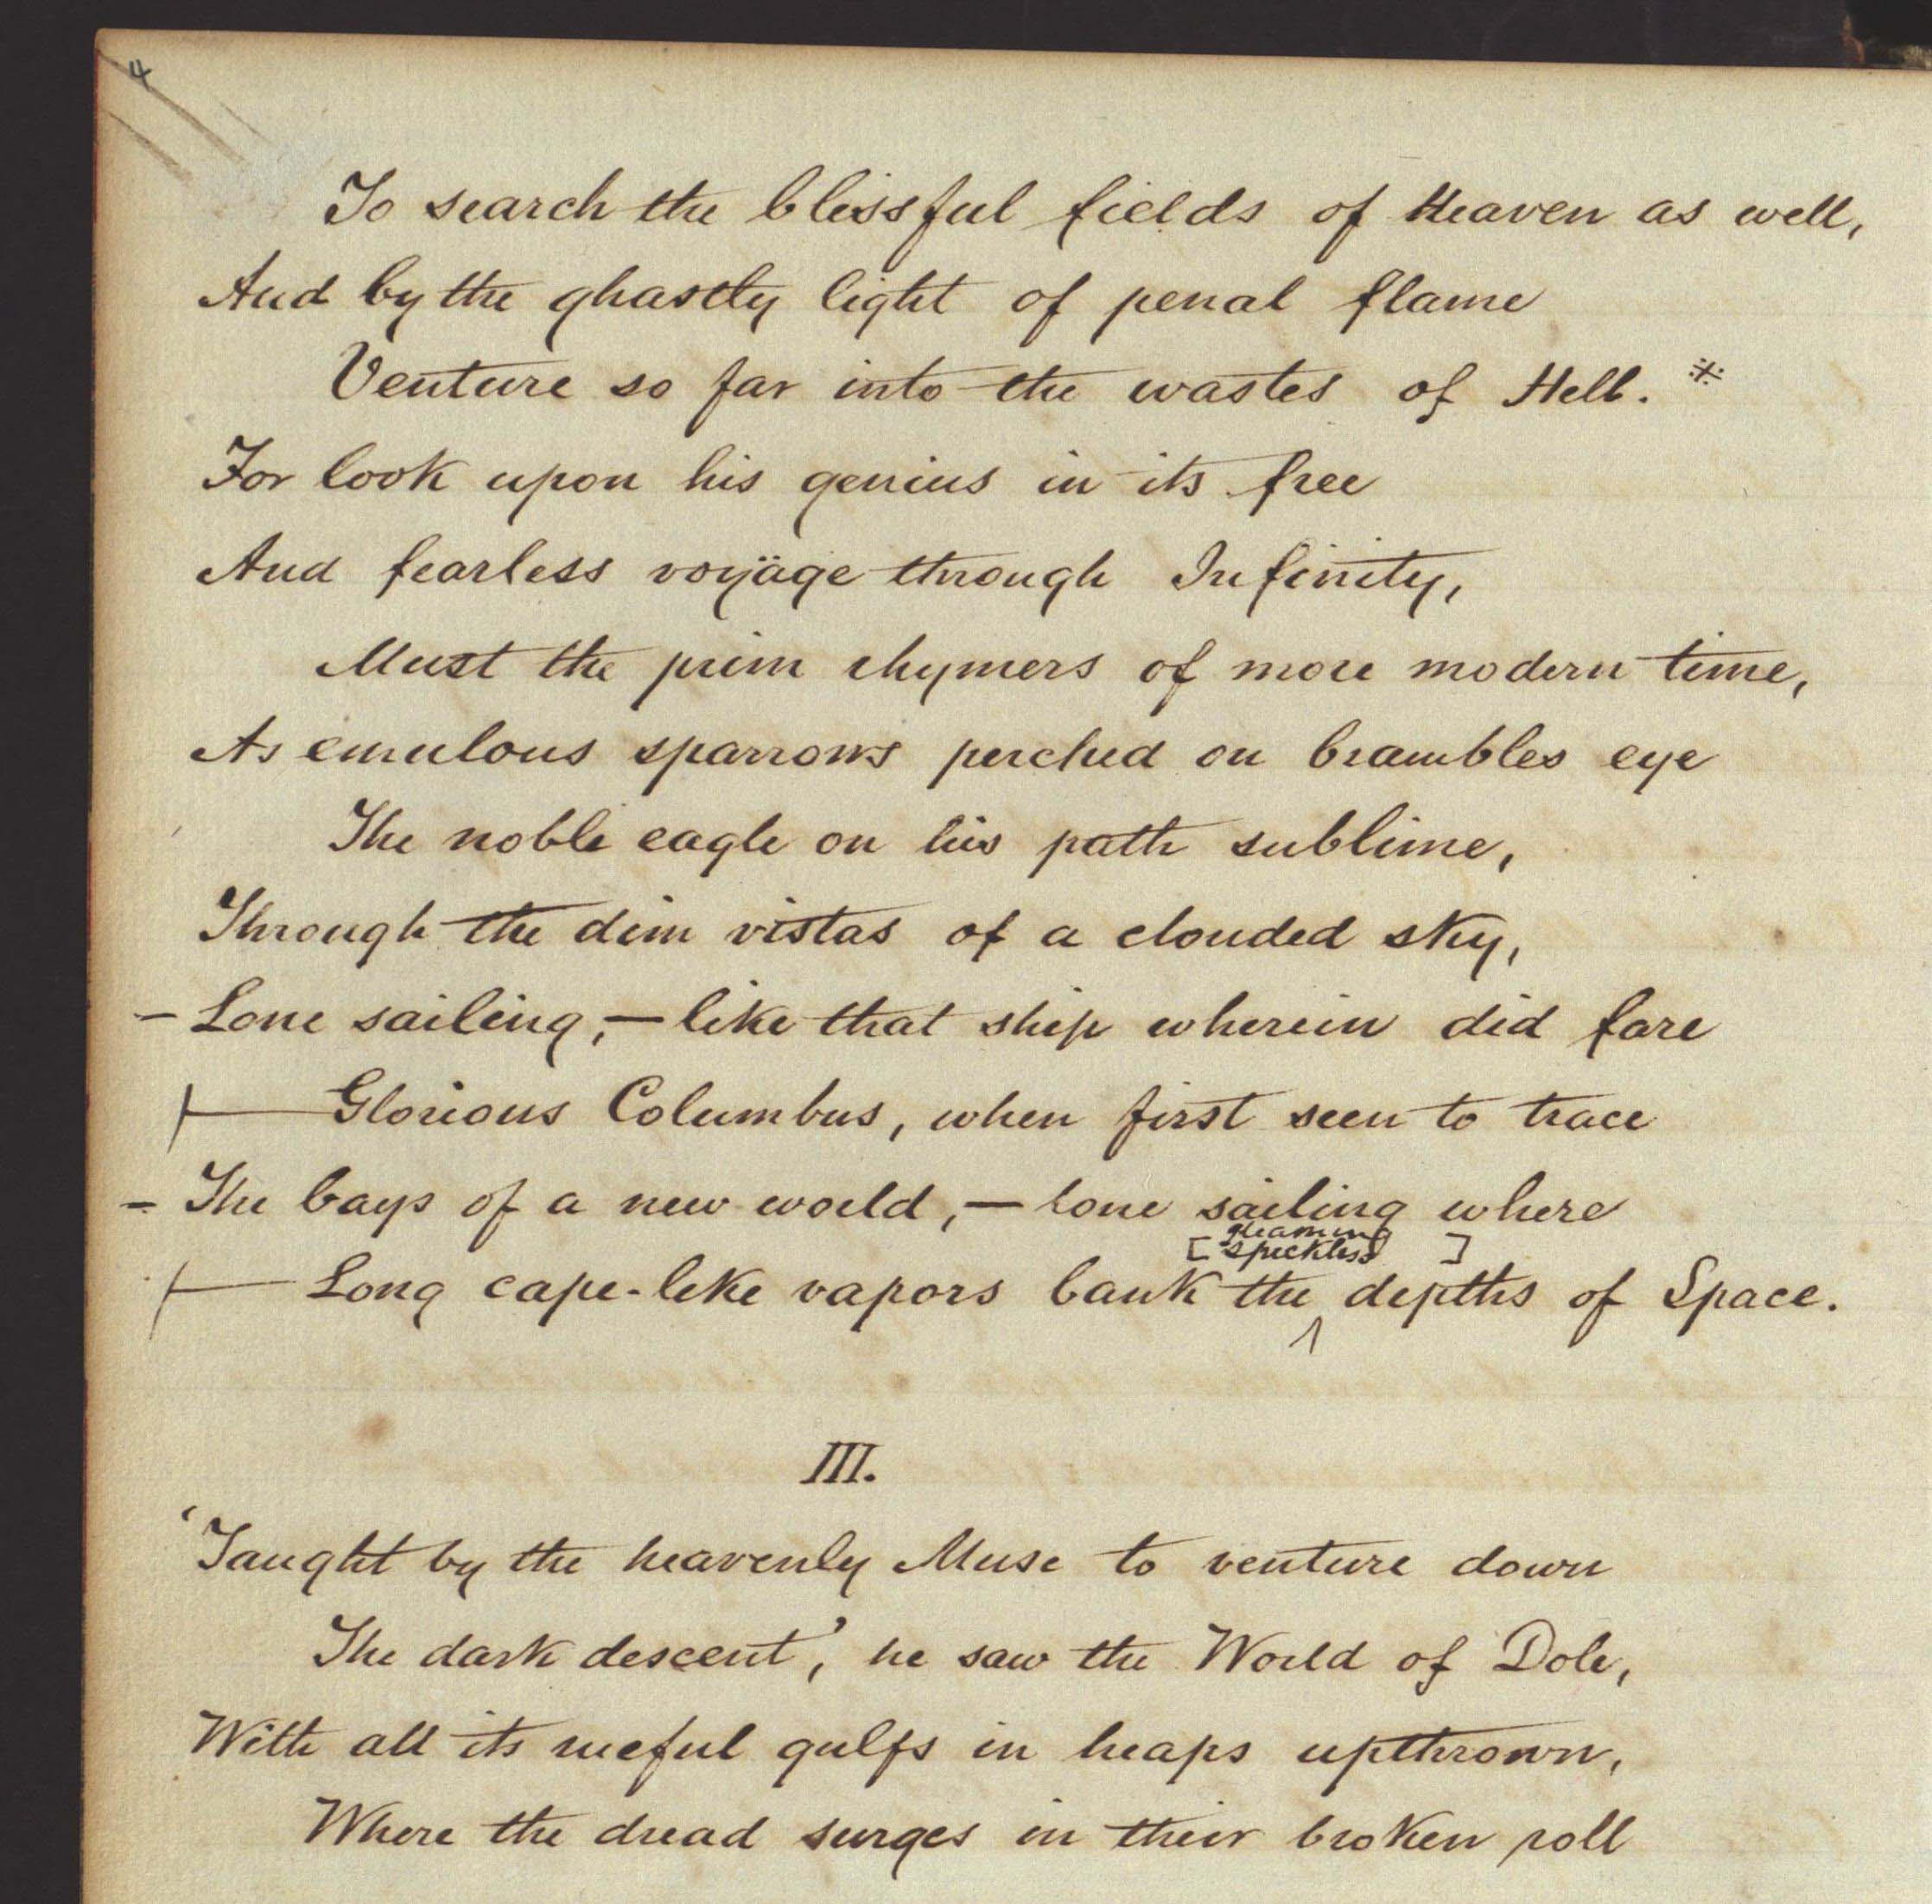 4
To search the blissful fields of Heaven as well,
And by the ghastly light of penal flame
Venture so far into the wastes of Hell. ※
For look upon his genius in its free
And fearless voyäge through Infinity,
Must the prim rhymers of more modern time,
As emulous sparrows perched on brambles eye
The noble eagle on his path sublime,
Through the dim vistas of a clouded sky,
– Lone sailing,—like that ship wherein did fare
Glorious Columbus, when first seen to trace
– The bays of a new world,—lone sailing where
gleaming
[speckless ]
Long cape-like vapors bank the ^ depths of Space.
III.
'Taught by the heavenly Muse to venture down
The dark descent', he saw the World of Dole,
With all its rueful gulfs in heaps upthrown,
Where the dread surges in their broken roll